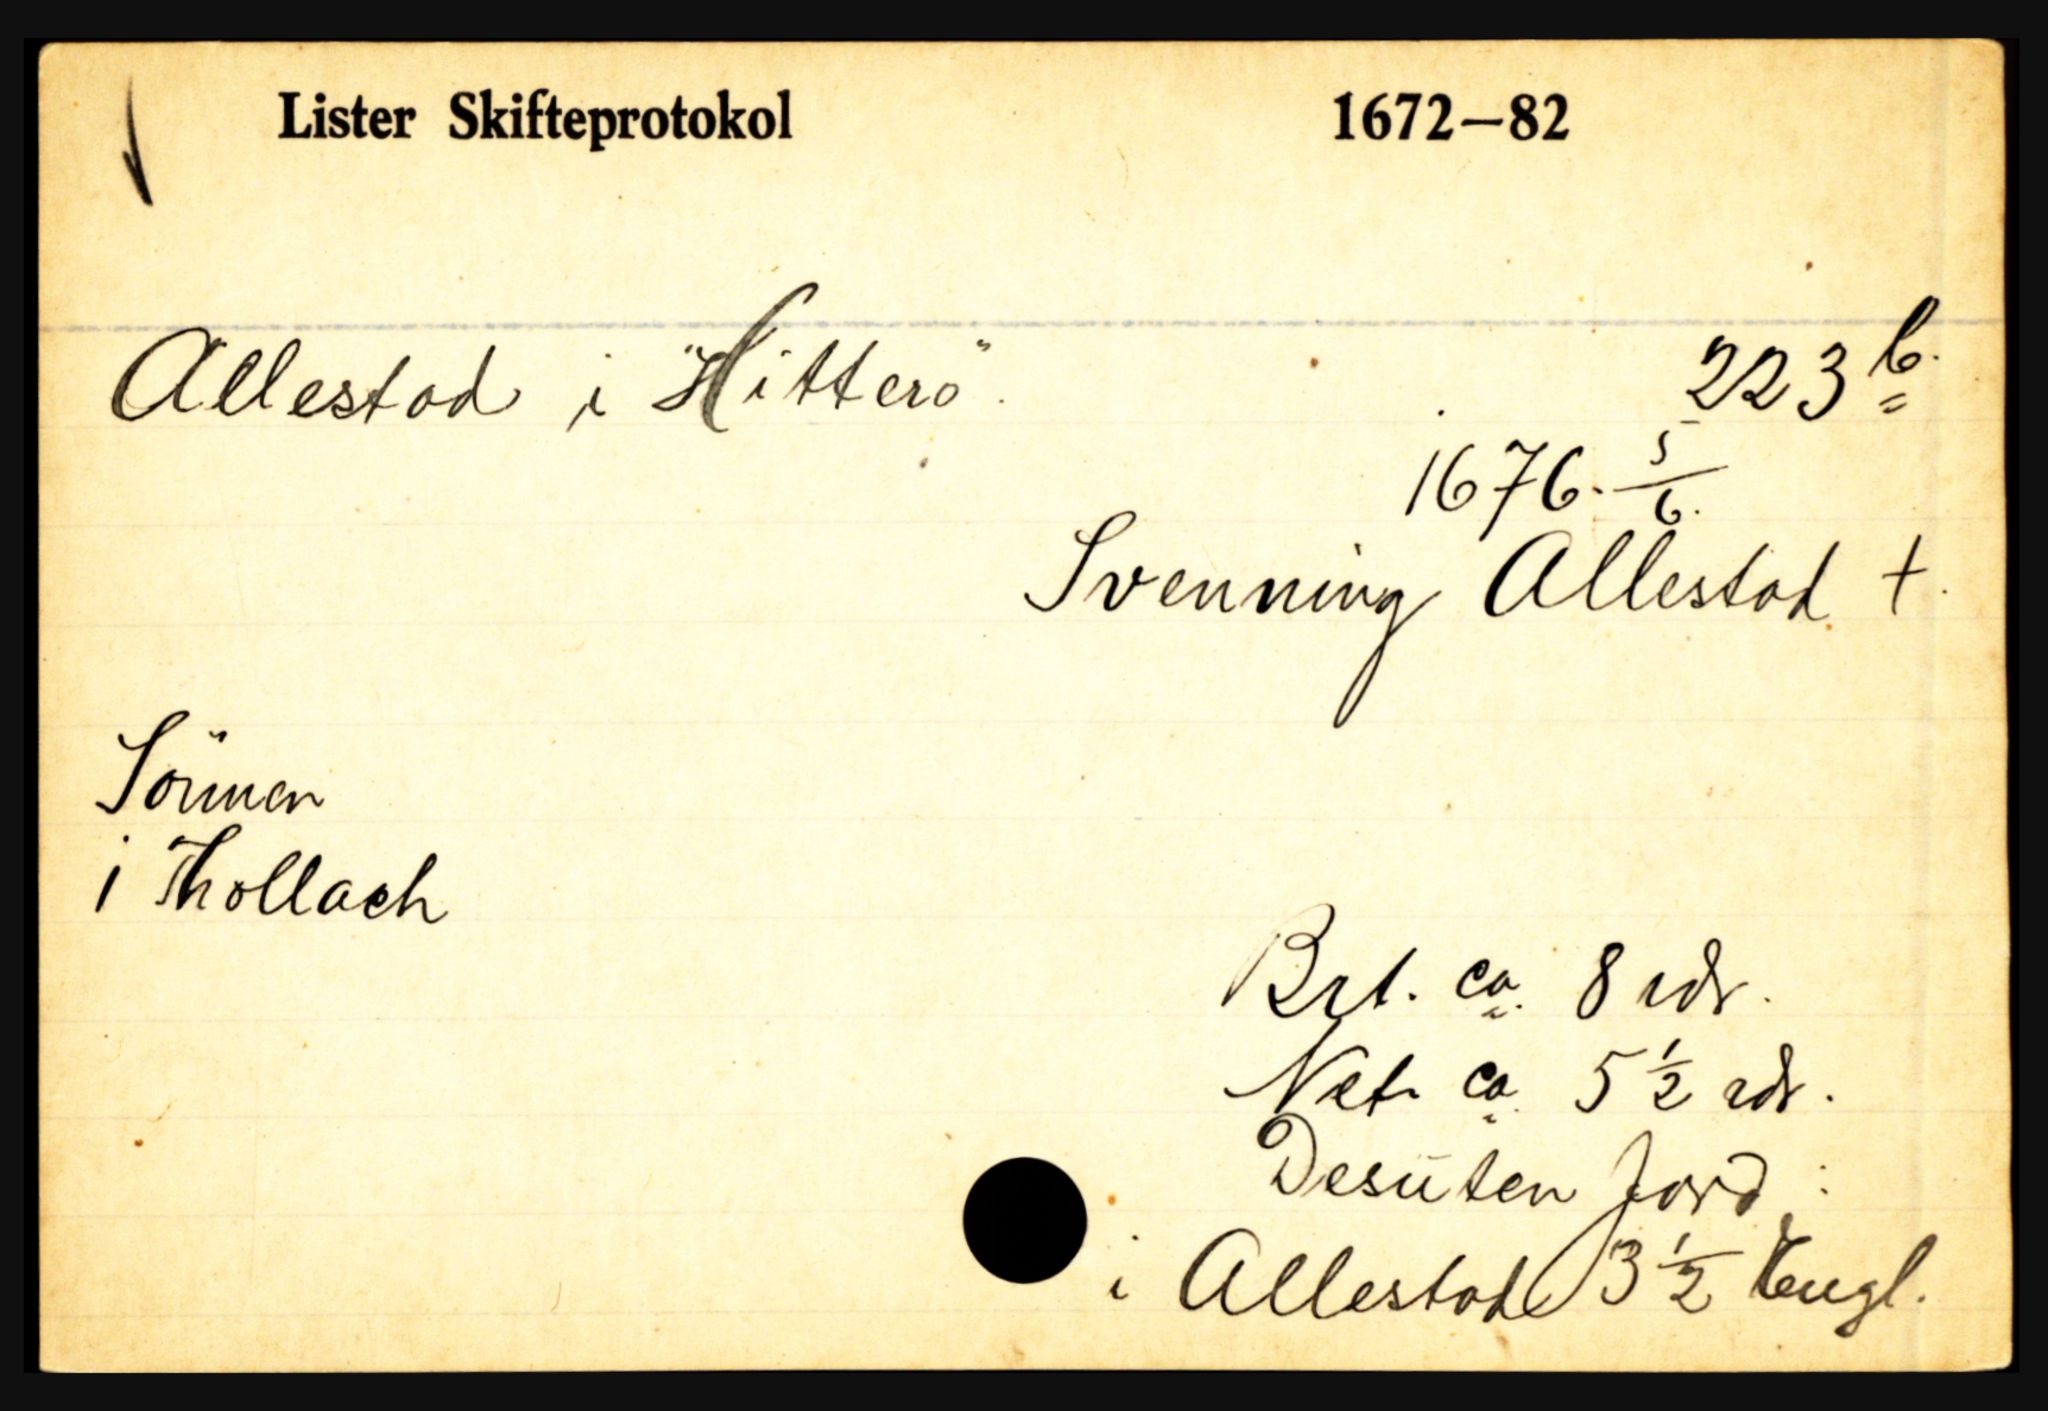 Lister Skifteprotokol 1672—82
Allestad i "Hitterö". 223 b.
1676. 5/6.
Svenning Allestad †.
i Thollach
Brt. ca. 8 rdr.
Net. ca. 5 ½ rdr.
Desüten Jord:
i Allestad 3 ½ Engl.